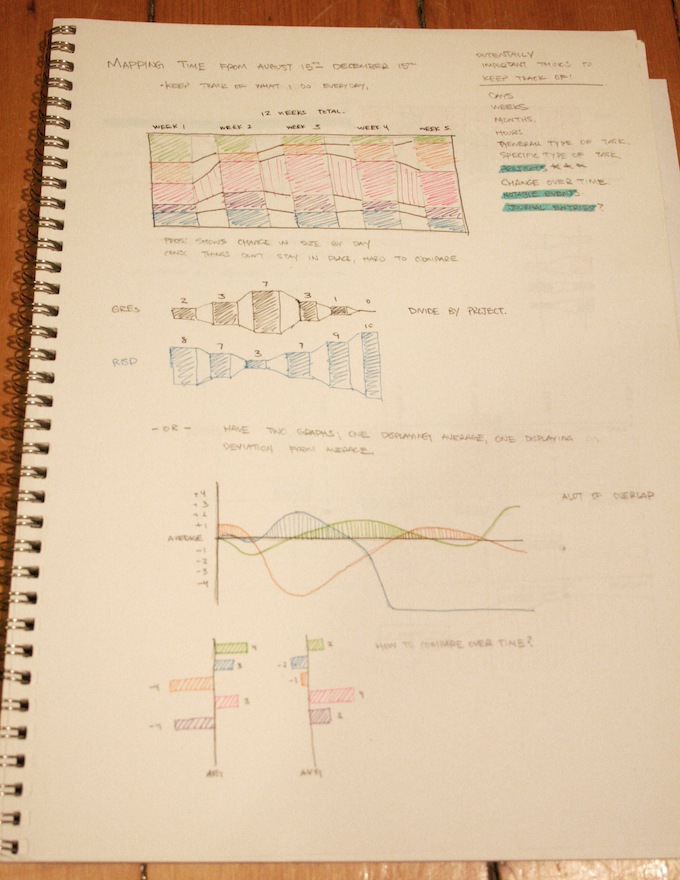 MAPPING TIME FROM AUGUST 15TH DECEMBER 15TH
- KEEP TRACK OF WHAT I DO EVERYDAY.
POTENTIALLY
IMPORTANT THINGS TO
KEEP TRACK OF!
DAYS
WEEKS
MONTHS.
HOURS
GENERAL TYPE OF TASK
SPECIFIC TYPE OF TASK
PROJECT
CHANGE OVER TIME
NOTABLE EVENTS
JOURNAL ENTRIES?
12 WEEKS TOTAL.
WEEK 1 WEEK 2 WEEK 3 WEEK 4 WEEK 5
PROS: SHOWS CHANGE IN SIZE BY DAY
CONS: THINGS DON'T STAY IN PLACE, HARD TO COMPARE
2 3 7 3 1 0
GRES DIVIDE BY PROJECT.
8 7 3 7 9 10
RISD
- OR - MAKE TWO GRAPHS; ONE DISPLAYING AVERAGE, ONE DISPLAYING
DEVIATION FROM AVERAGE.
ALOT OF OVERLAP
+4
+3
+2
+1
AVERAGE
-1
-2
-3
-4
HOW TO COMPARE OVER TIME?
4 2
3 -2
-4 -1
3 4
-4 2